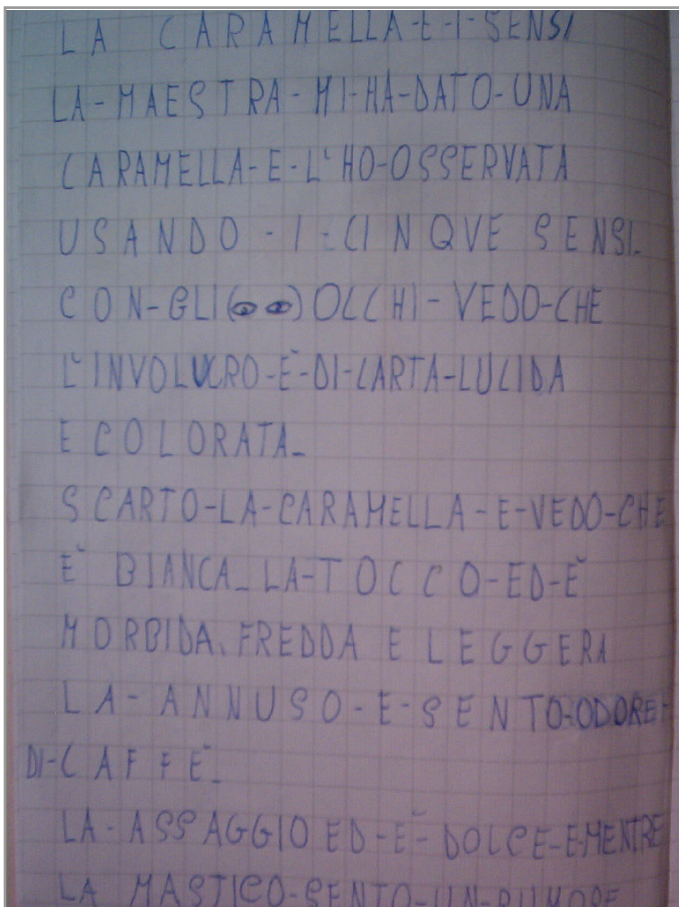 LA CARAMELLA-E-I-SENSI
LA-MAESTRA-MI-HA-DATO-UNA
CARAMELLA-E-L'HO-OSSERVATA
USANDO-I-CINQVE SENSI.
CON-GLI(👁👁)OLCHI-VEDO-CHE
L'INVOLUCRO-E'-DI-CARTA-LUCIDA
E COLORATA.
SCARTO-LA-CARAMELLA-E-VEDO-CHE
E' BIANCA. LA-TOCCO-ED-E'
MORBIDA, FREDDA E LEGGERA
LA-ANNUSO-E-SENTO-ODORE-
DI-CAFFE'.
LA-ASSAGGIO ED-E'-DOLCE-E-MENTRE
LA MASTICO-SENTO-UN-RUMORE